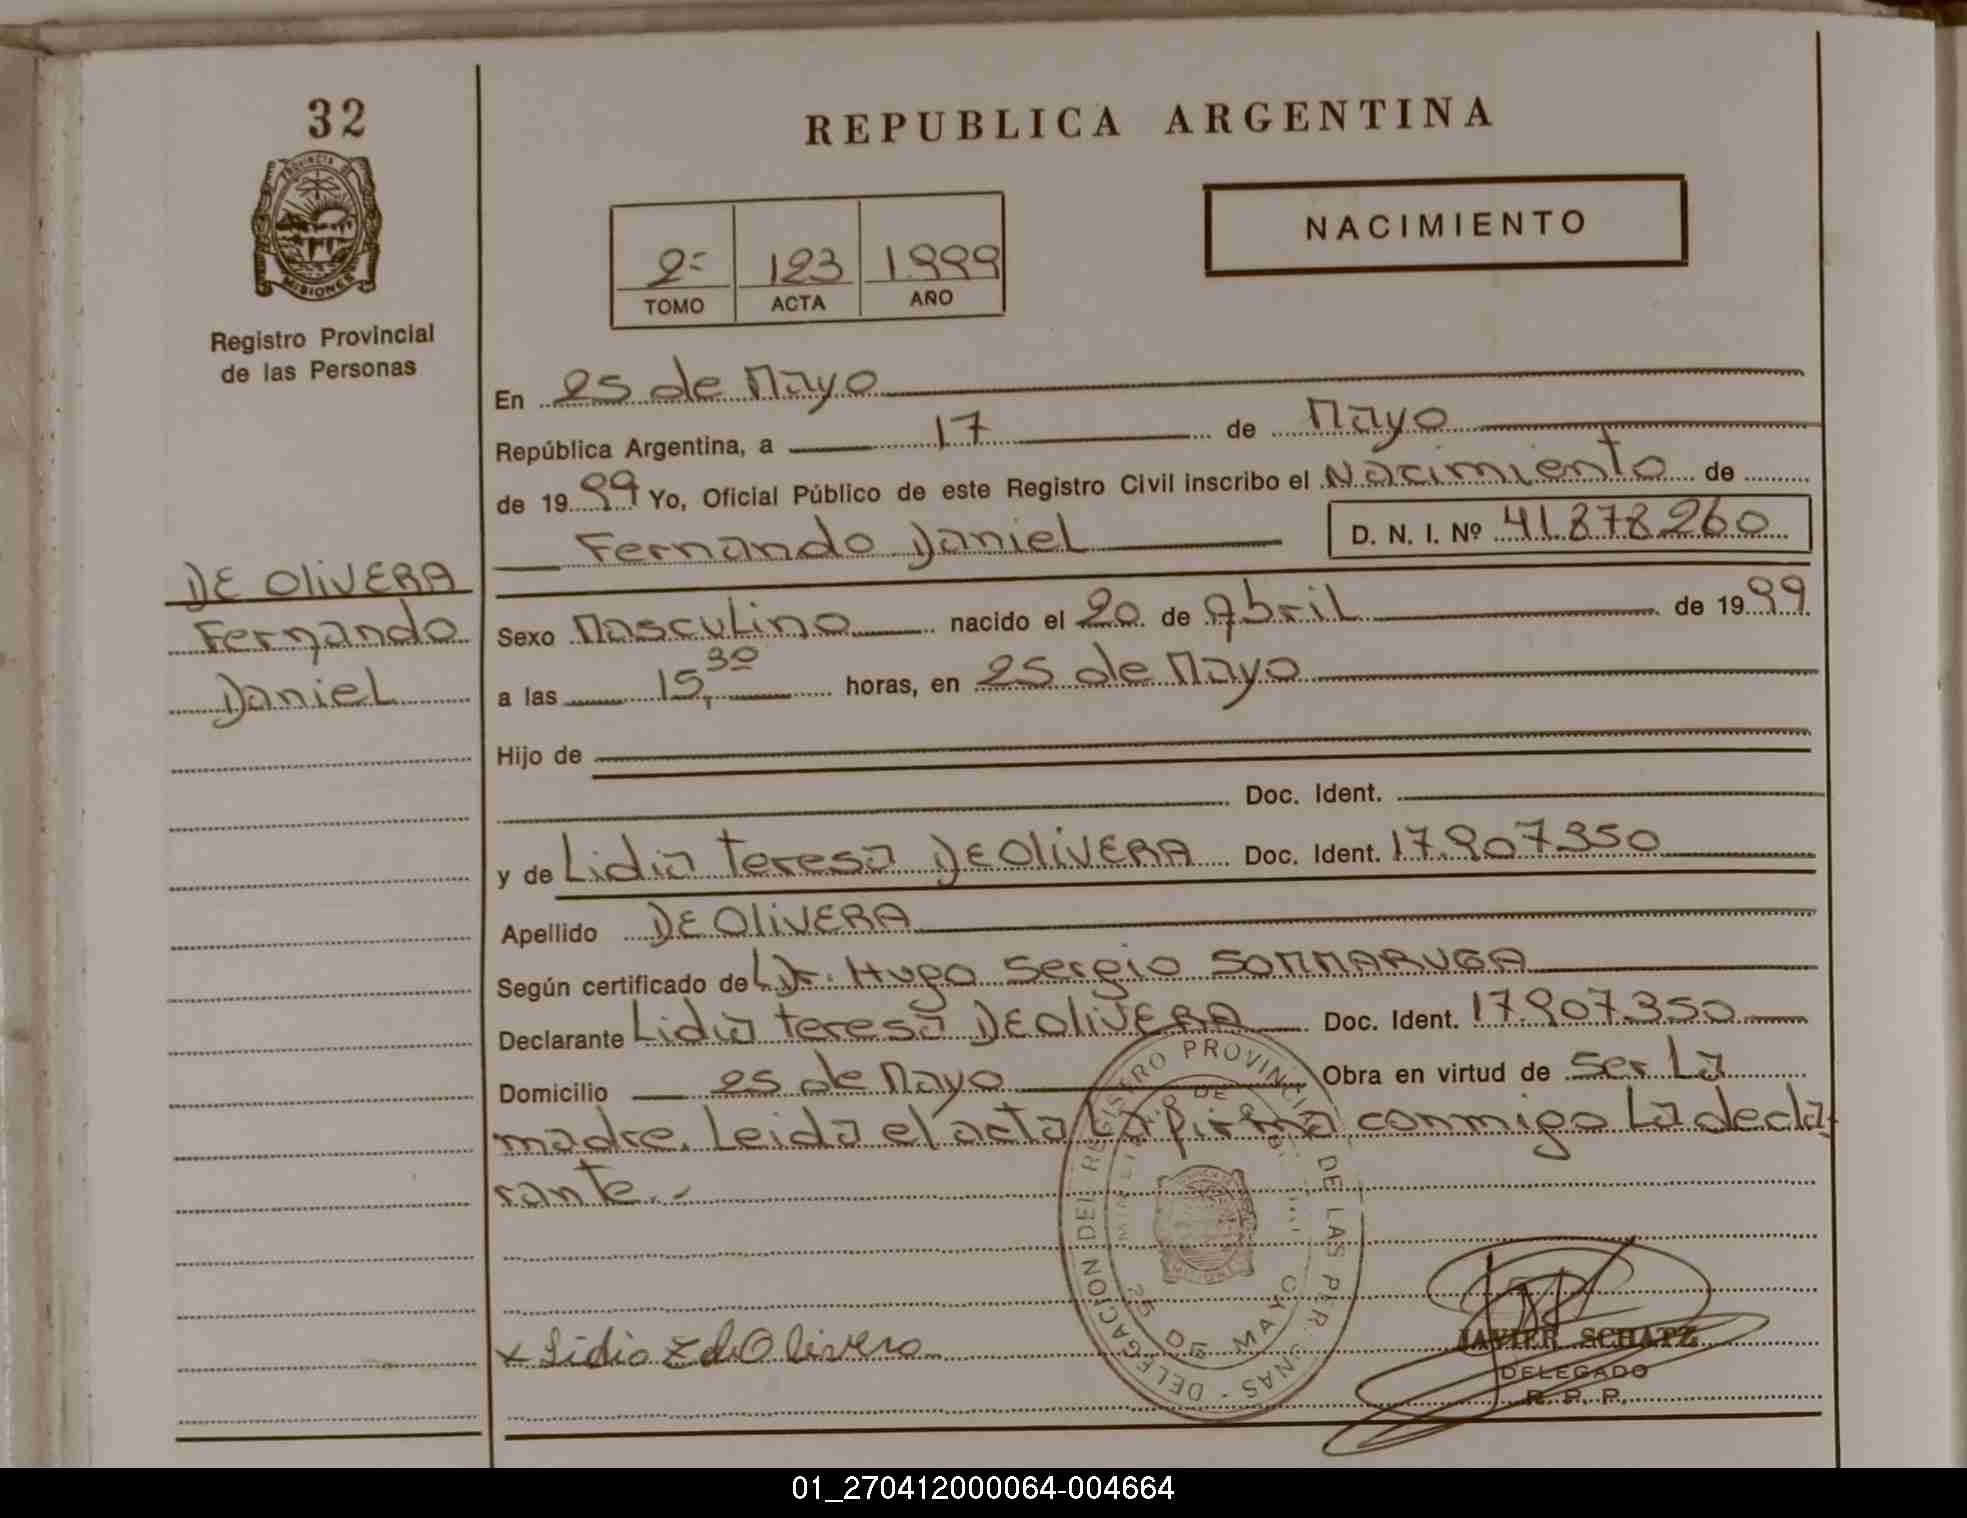 32
REPUBLICA ARGENTINA
NACIMIENTO
PROVINCIA DE
MISIONES
Registro Provincial
de las Personas
2º 123 1999
TOMO ACTA AÑO
En 25 de Mayo
República Argentina, a 17 de Mayo
de 1999 Yo, Oficial Público de este Registro Civil inscribo el Nacimiento de
Fernando Daniel D. N. I. Nº 41.878.260
DE OliVERA
Fernando
Daniel
Sexo Masculino nacido el 20 de Abril de 1999
a las 15,30 horas, en 25 de Mayo
Hijo de
Doc. Ident.
y de Lidia Teresa DE OliVERA Doc. Ident. 17.907.350
Apellido DE OliVERA
Según certificado de L Dr. Hugo Sergio SOMMARUGA
Declarante Lidia Teresa DE OliVERA Doc. Ident. 17.907.350
Domicilio 25 de Mayo Obra en virtud de ser La
madre. Leida el acta La firma conmigo La decla-
rante.-
DELEGACION DEL REGISTRO PROVINCIAL DE LAS PERSONAS -
25 DE MAYO
MISIONES
x Lidia T de Olivera
JAVIER SCHATZ
DELEGADO
R. P. P.
01_270412000064-004664